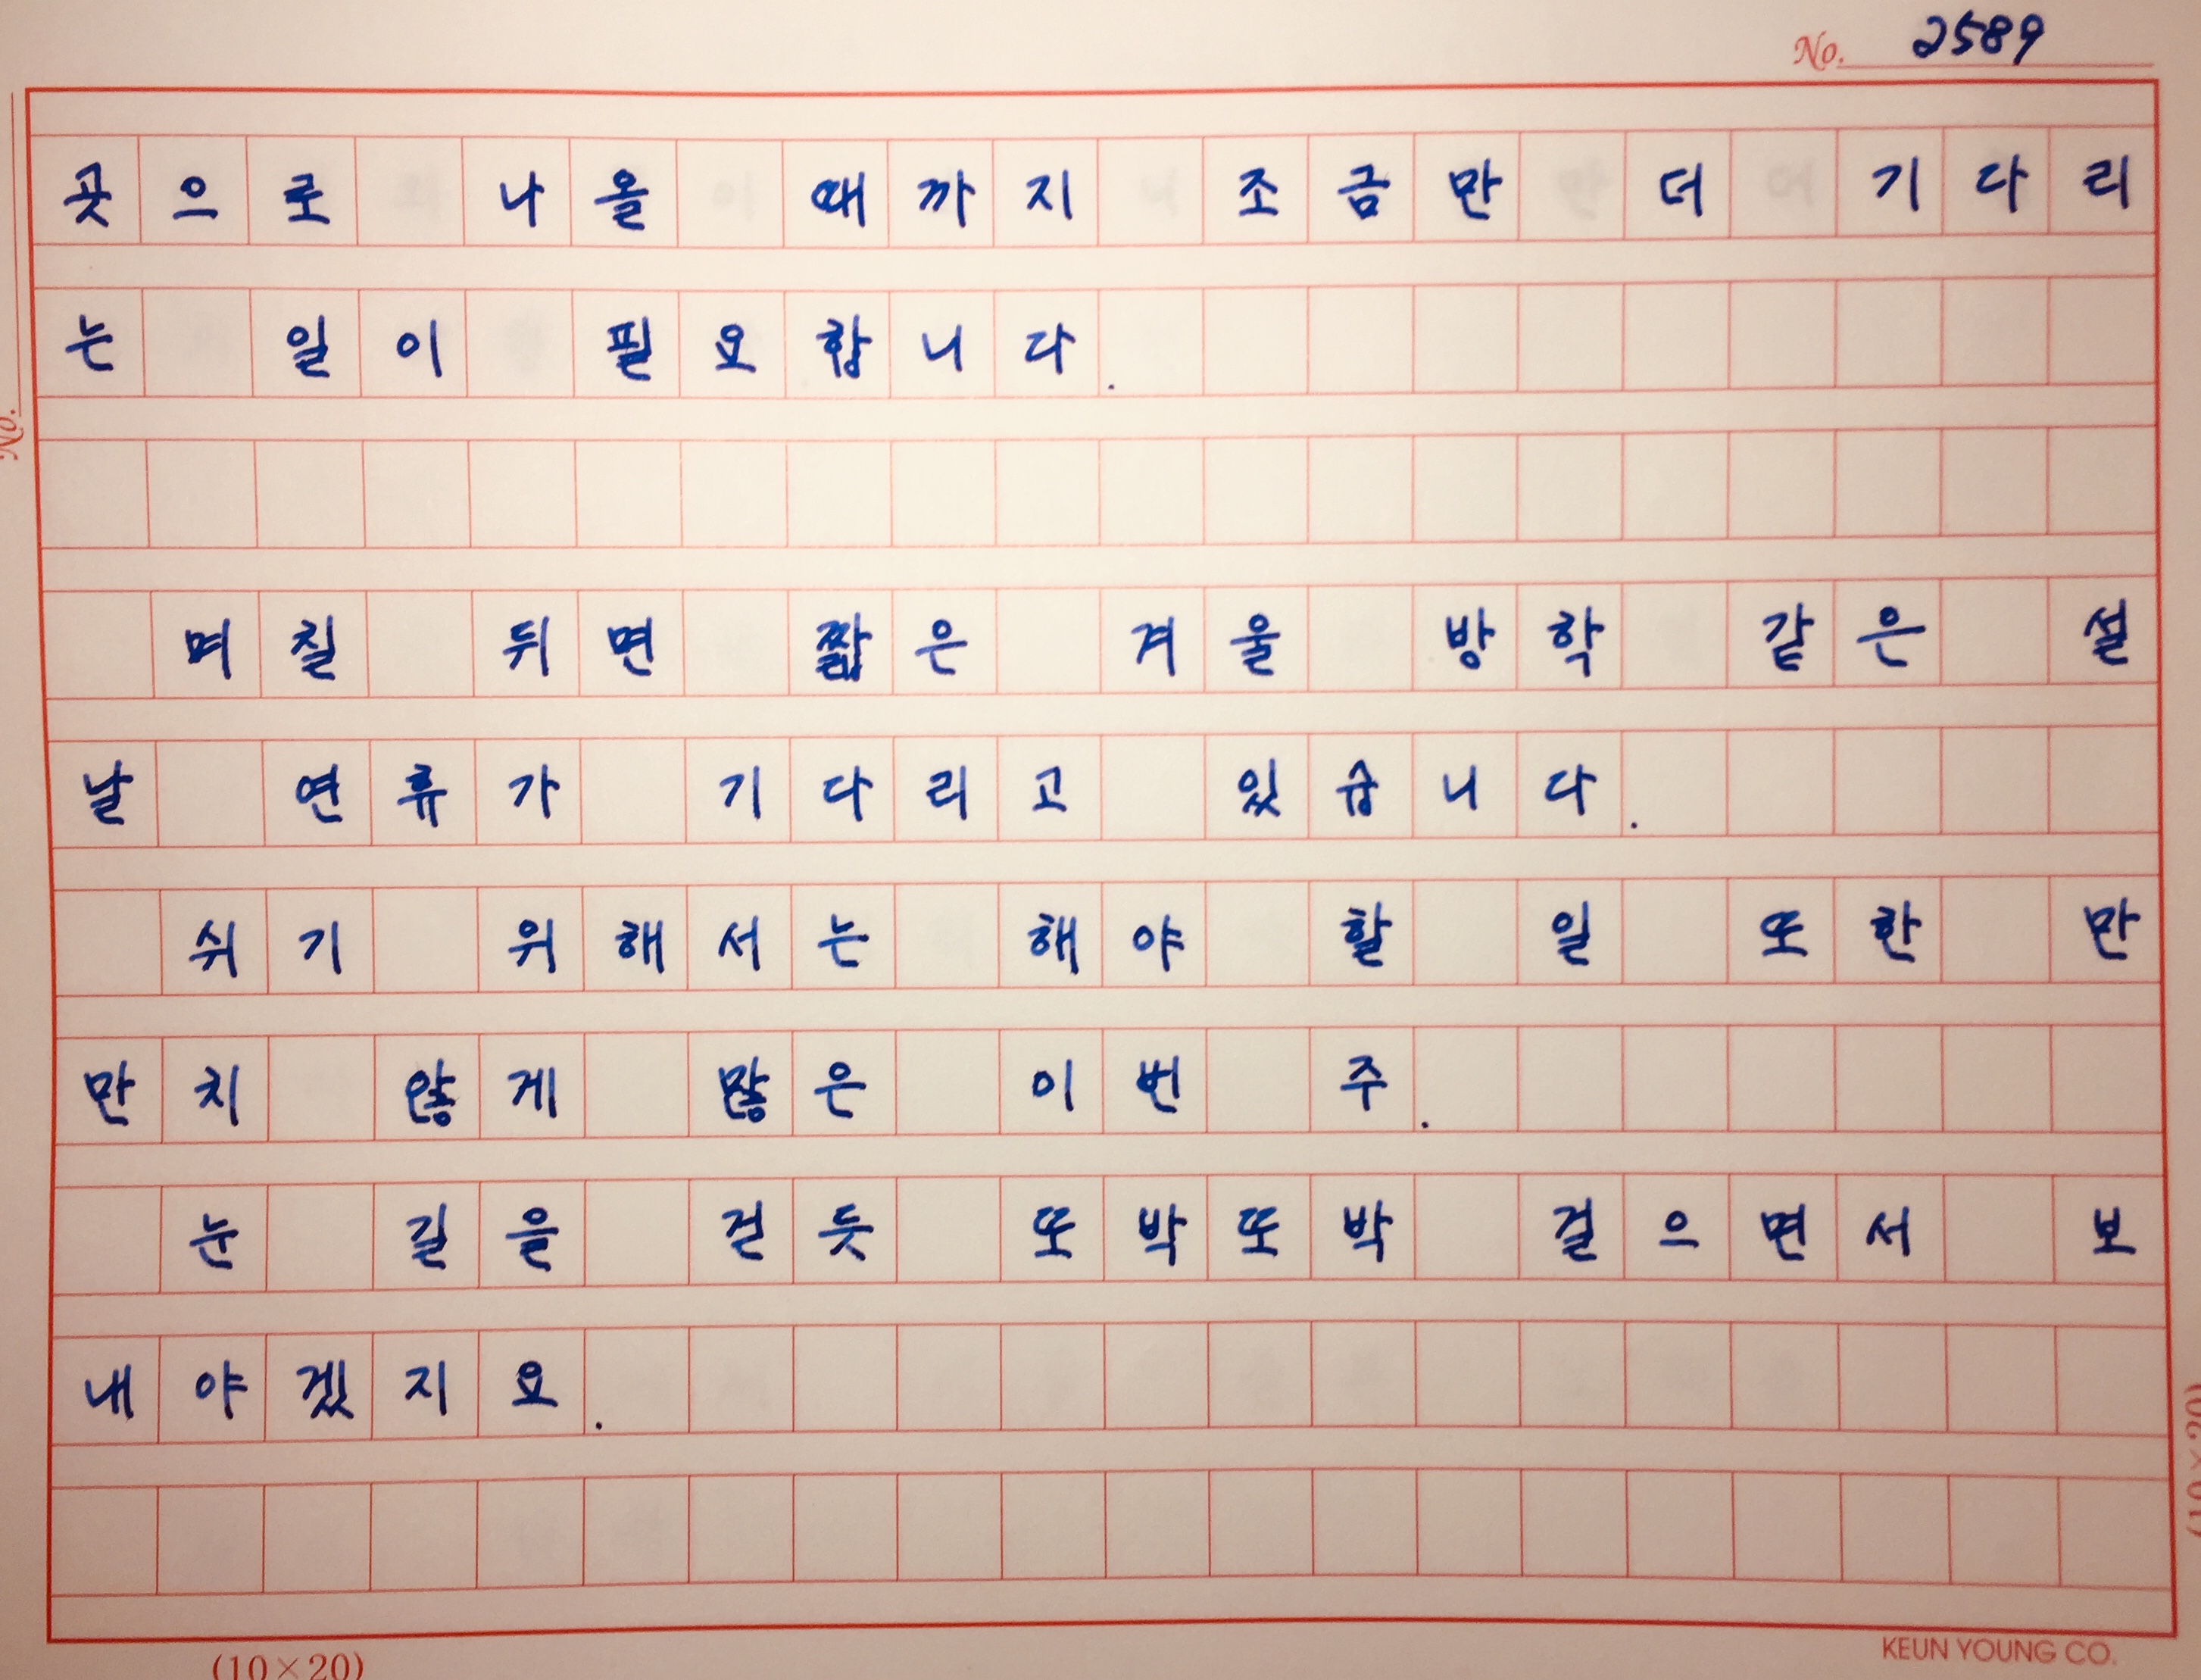 No. 2589
곳으로 나올 때까지 조금만 더 기다리
는 일이 필요합니다.
며칠 뒤면 짧은 겨울 방학 같은 설
날 연류가 기다리고 있습니다.
쉬기 위해서는 해야 할 일 또한 만
만치 않게 많은 이번 주.
눈 길을 걷듯 또박또박 걸으면서 보
내야겠지요.
No.
(10×20)
(10×20)
KEUN YOUNG CO.